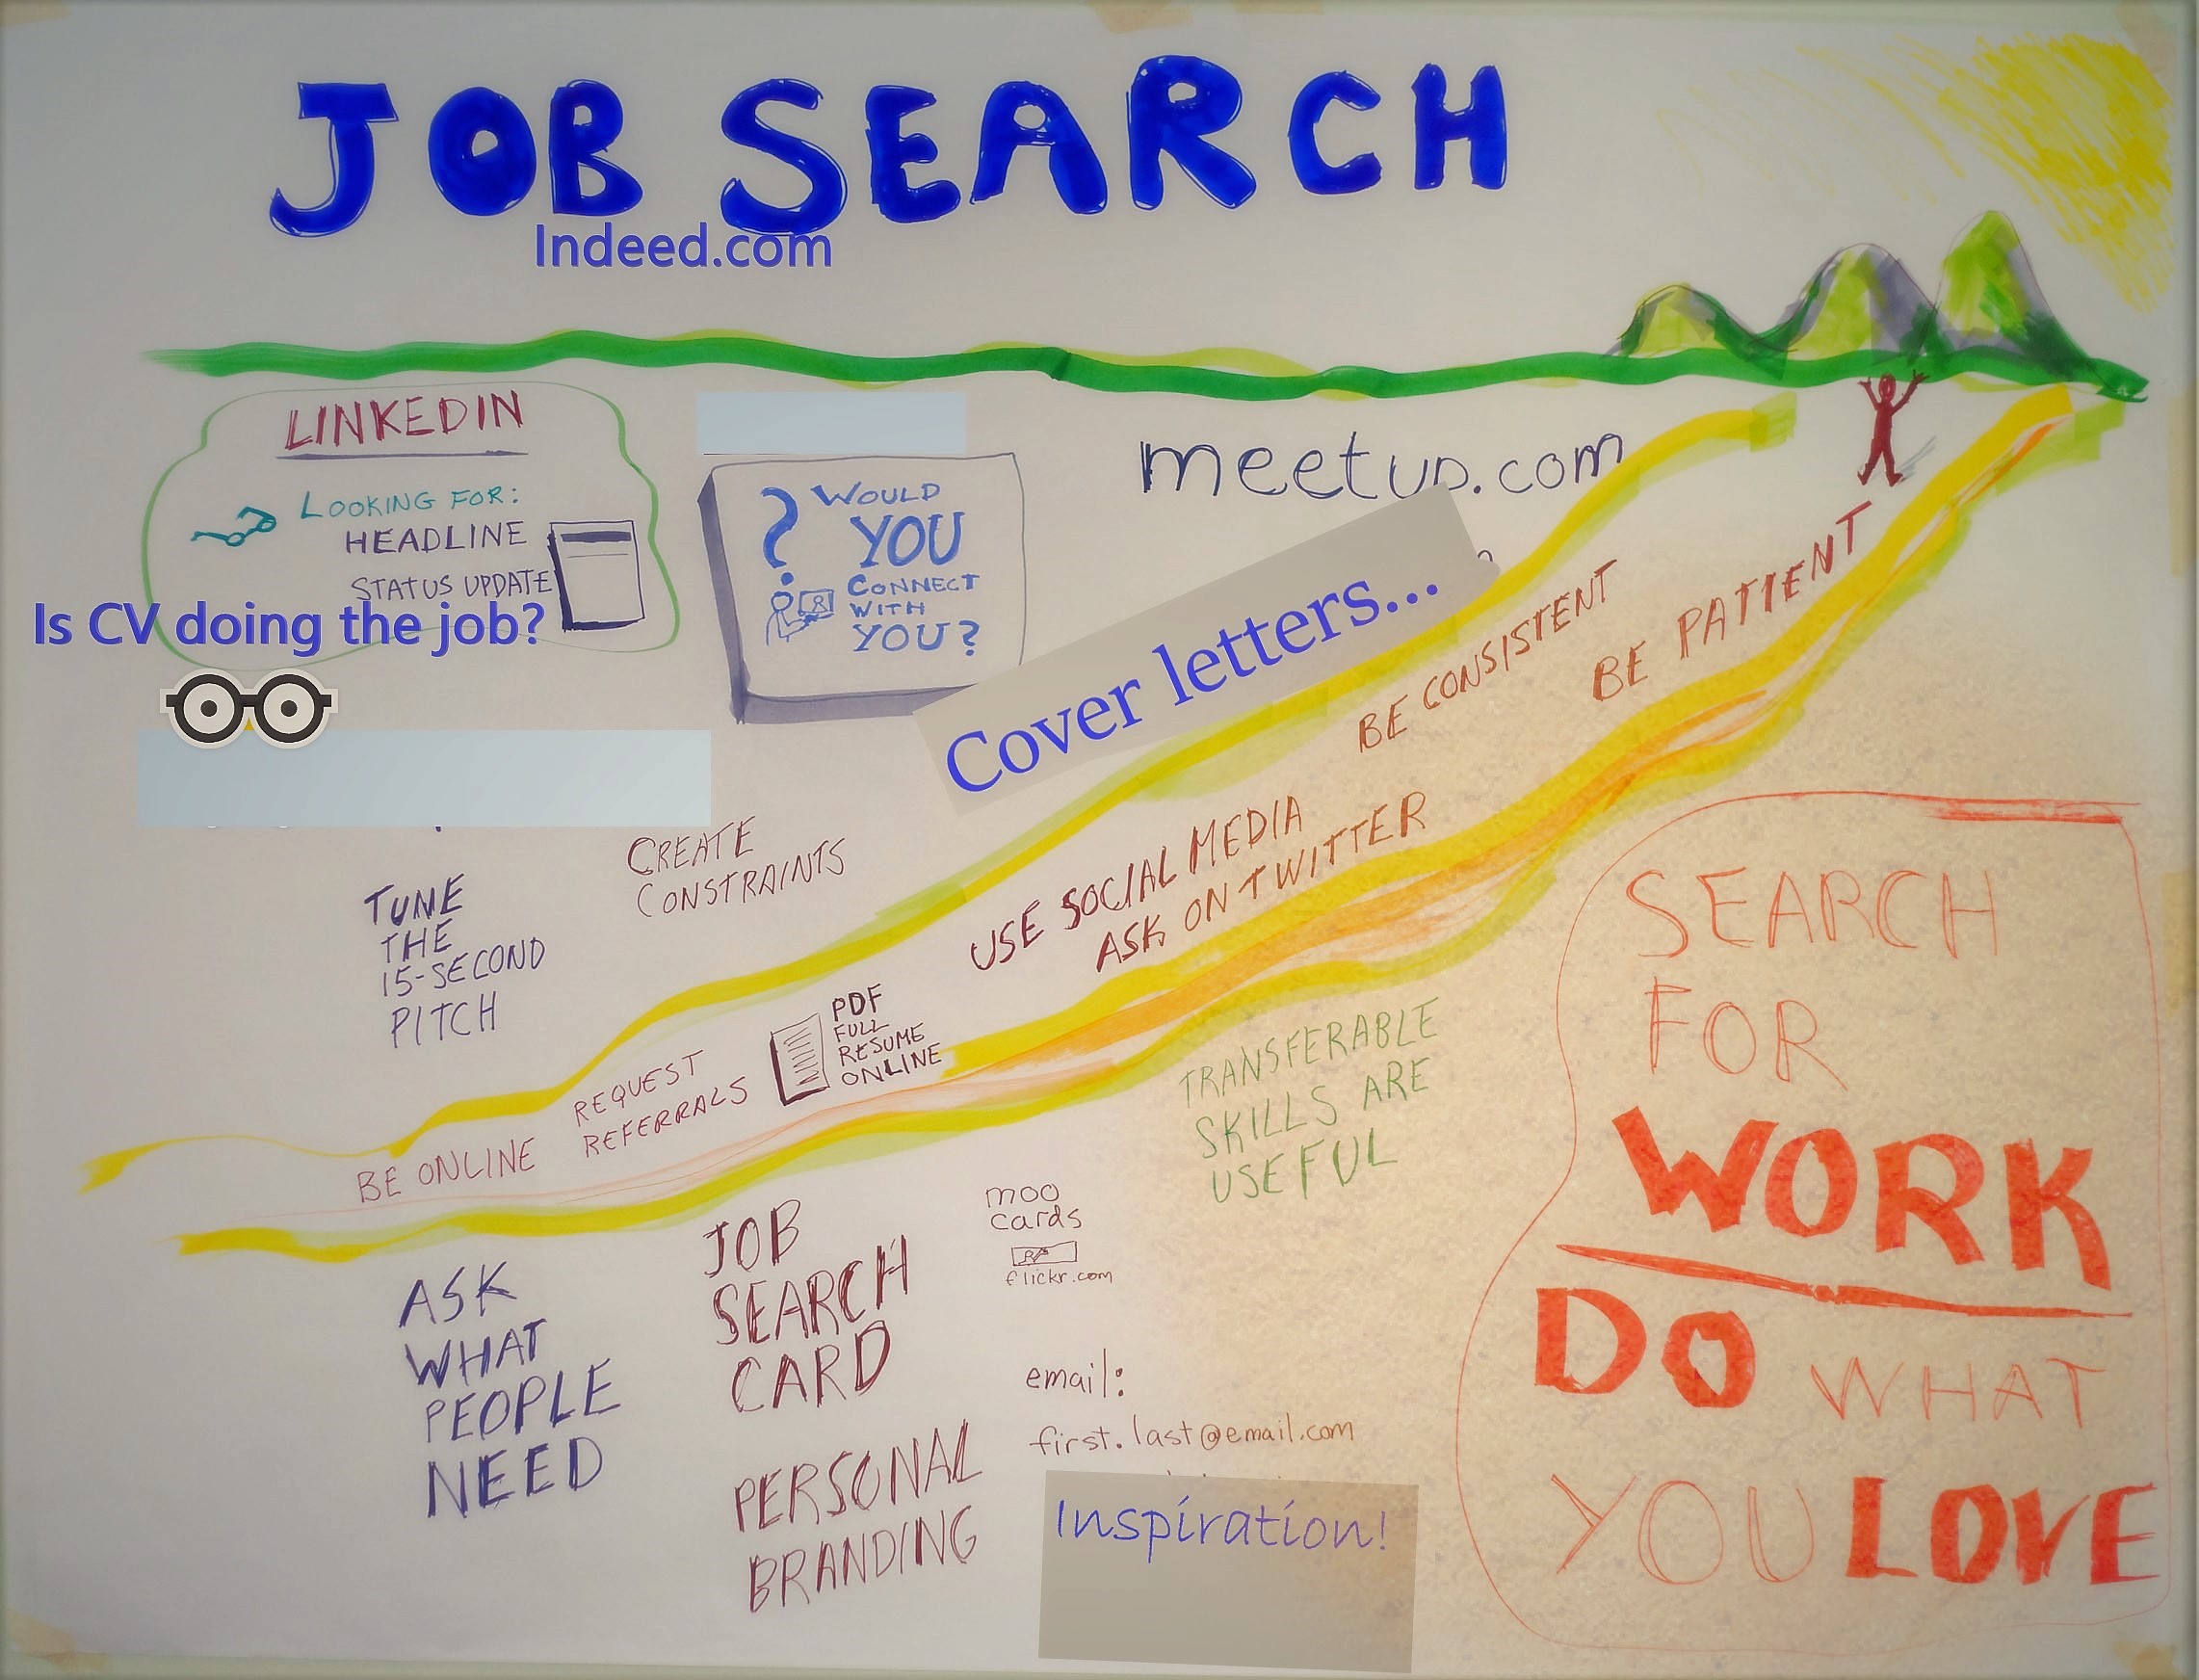 JOB SEARCH
Indeed.com
LINKEDIN
LOOKING FOR:
HEADLINE
STATUS UPDATE
Is CV doing the job?
? WOULD
YOU
CONNECT
WITH
YOU?
meetup.com
Cover letters...
BE CONSISTENT
BE PATIENT
CREATE
CONSTRAINTS
TUNE
THE
15-SECOND
PITCH
USE SOCIAL MEDIA
ASK ON TWITTER
PDF
FULL
RESUME
ONLINE
REQUEST
REFERRALS
BE ONLINE
TRANSFERABLE
SKILLS ARE
USEFUL
SEARCH
FOR
WORK
DO WHAT
YOU LOVE
ASK
WHAT
PEOPLE
NEED
JOB
SEARCH
CARD
PERSONAL
BRANDING
moo
cards
flickr.com
email:
first.last@email.com
Inspiration!